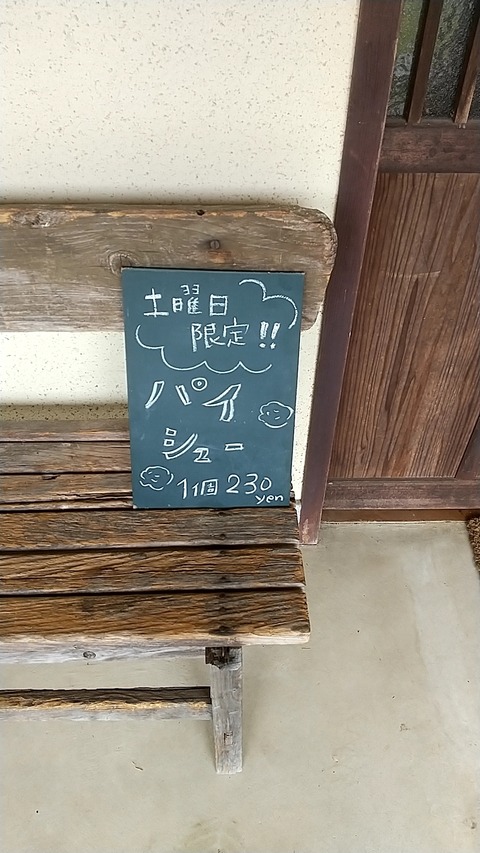 土曜日
限定!!
パイ
シュー
1個 230
yen